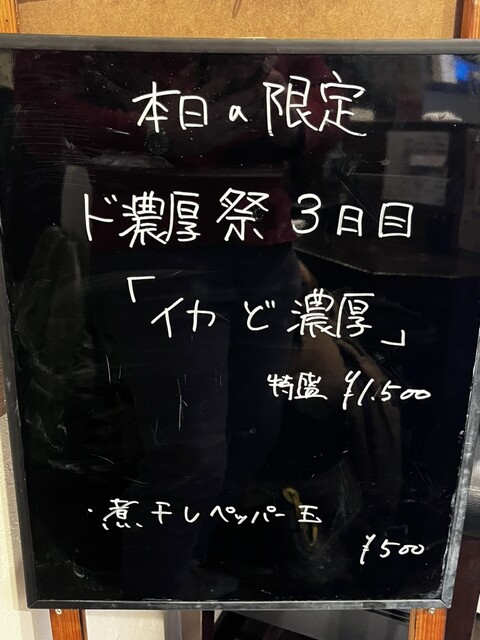 本日の限定
ド濃厚祭 3日目
「イカど濃厚」
特盛 ¥1.500
・煮干しペッパー玉
¥500